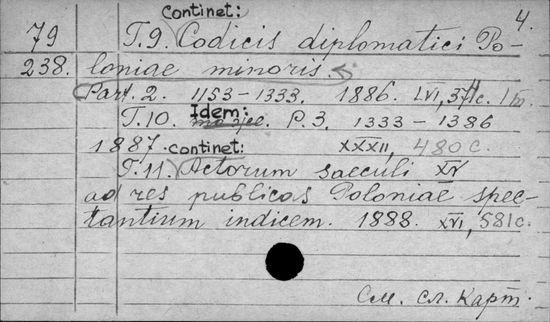 Continet: 4.
79 Т.9. Codicis diplomatici Po-
238. loniae minoris.
Part. 2. 1153-1333. 1886. LVI, 371c.
Т.10. Idem: P.3. 1333-1386
1887. continet: XXXII, 480 c.
Т.11. Actorum saeculi XV
ad res publicas Poloniae spec-
tantium indicem. 1888. XVI, 581c.
См. сл. карт.